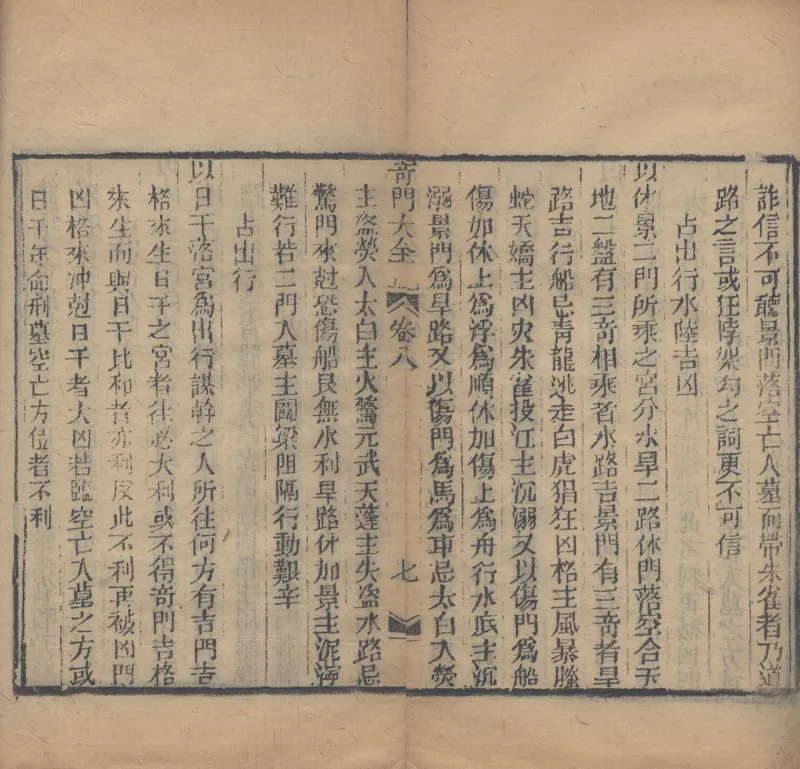 詐信不可聽景門落空亡入墓而帶朱雀者乃道
路之言或狂悖架勾之詞更不可信
占出行水陸吉凶
以休景二門所乘之宮分水旱二路休門落宮合天
地二盤有三奇相乘者水路吉景門有三奇者旱
路吉行船忌青龍逃走白虎猖狂凶格主風暴騰
蛇天嬌主凶灾朱雀投江主沉溺又以傷門爲船
傷如休上爲浮爲順休加傷上爲舟行水底主沉
溺景門爲旱路又以傷門爲馬爲車忌太白入熒
奇門大全 卷八 七
主盜熒入太白主火驚元武天蓬主失盜水路忌
驚門來尅恐傷船艮無水利旱路休加景主泥濘
難行若二門入墓主關梁阻隔行動艱辛
占出行
以日干落宮爲出行謀幹之人所往何方有吉門吉
格來生日干之宮者往必大利或不得奇門吉格
來生而與日干比和者亦利反此不利再被凶門
凶格來冲尅日干者大凶若臨空亡入墓之方或
日干年命刑墓空亡方位者不利